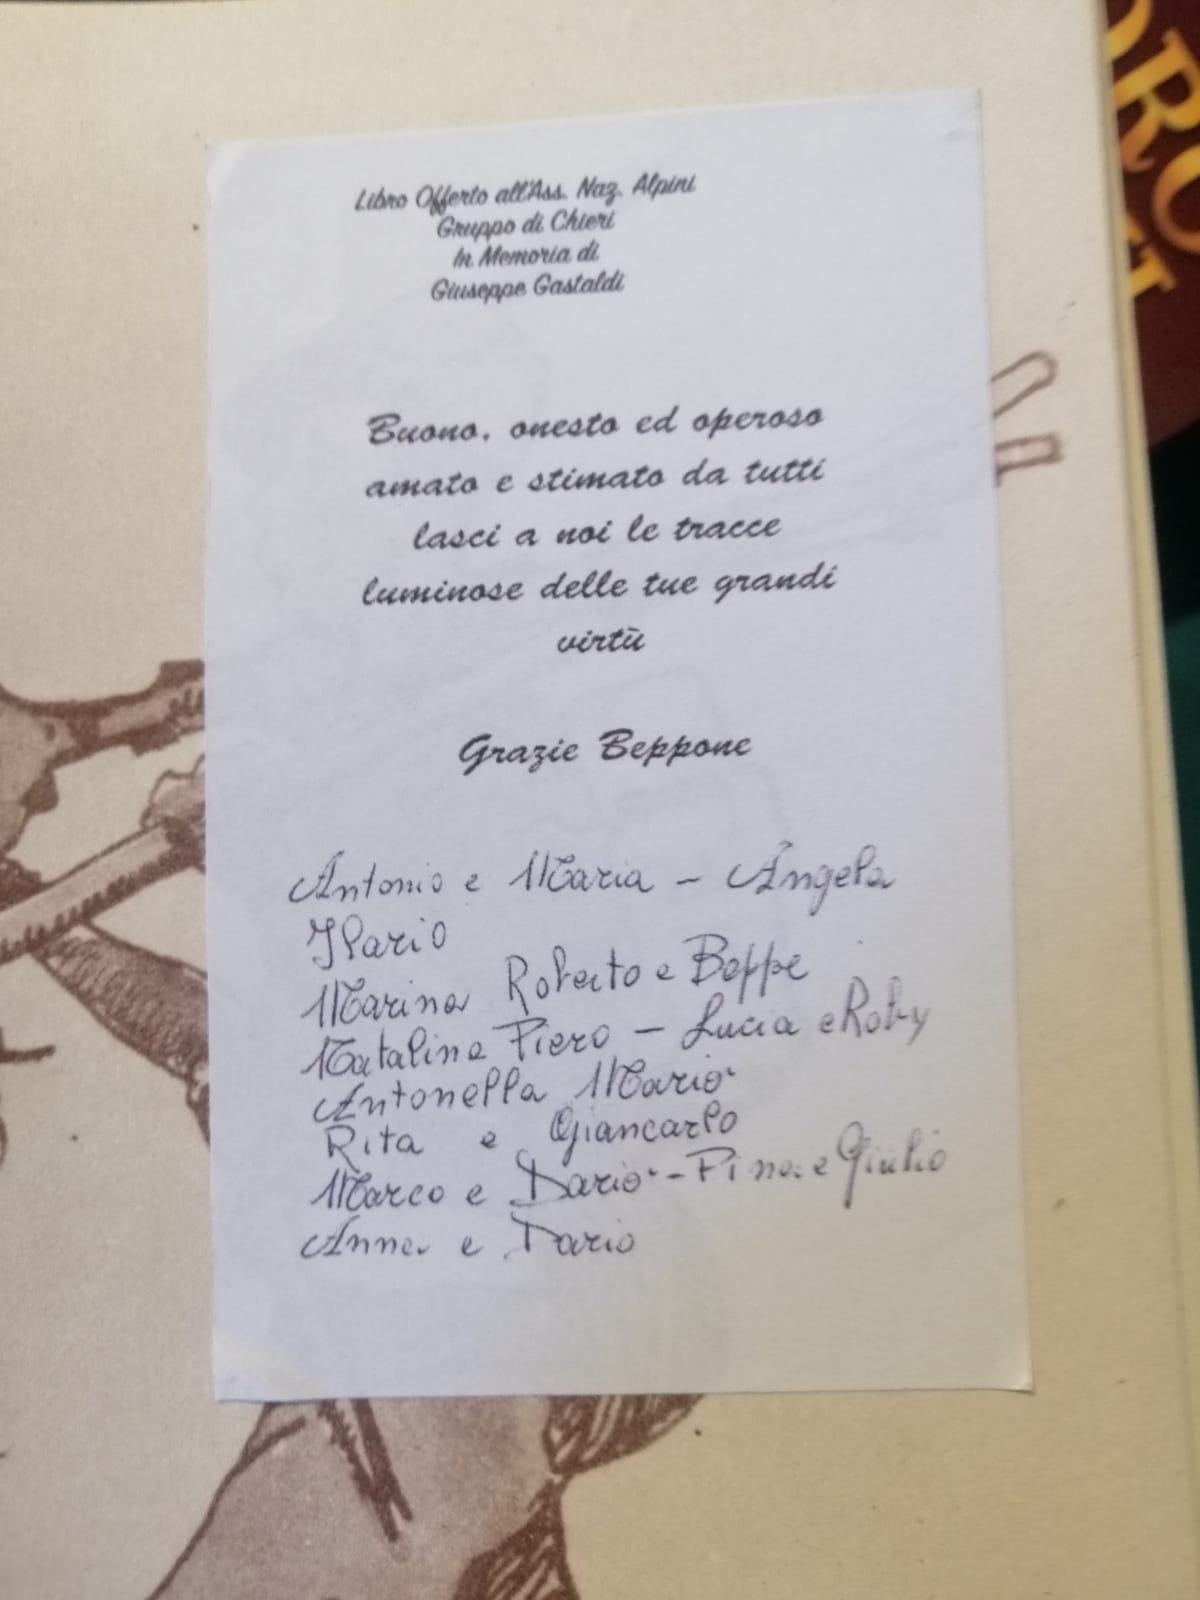 Libro Offerto all'Ass. Naz. Alpini
Gruppo di Chieri
In Memoria di
Giuseppe Gastaldi
Buono, onesto ed operoso
amato e stimato da tutti
lasci a noi le tracce
luminose delle tue grandi
virtù
Grazie Beppone
Antonio e Maria - Angela
Ilario
Marina Roberto e Beppe
Natalina Piero - Lucia e Roby
Antonella Mario
Rita e Giancarlo
Marco e Dario - Pina e Giulio
Anna e Dario